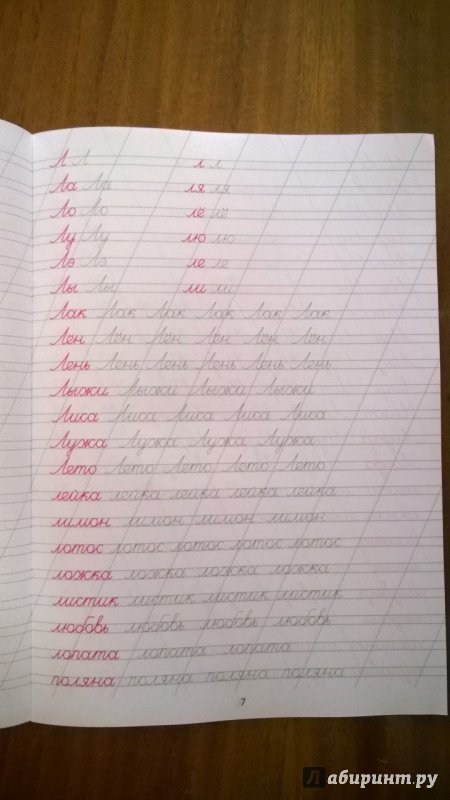 Л Л л л
Ла Ла ля ля
Ло Ло лё лё
Лу Лу лю лю
Лэ Лэ ле ле
Лы Лы ли ли
Лак Лак Лак Лак Лак Лак
Лён Лён Лён Лён Лён Лён
Лень Лень Лень Лень Лень Лень
Лыжи Лыжи Лыжи Лыжи
Лиса Лиса Лиса Лиса Лиса
Лужа Лужа Лужа Лужа
Лето Лето Лето Лето Лето
лейка лейка лейка лейка лейка
лимон лимон лимон лимон
лотос лотос лотос лотос лотос
ложка ложка ложка ложка
листик листик листик листик
любовь любовь любовь любовь
лопата лопата лопата
поляна поляна поляна поляна
7
Лабиринт.ру